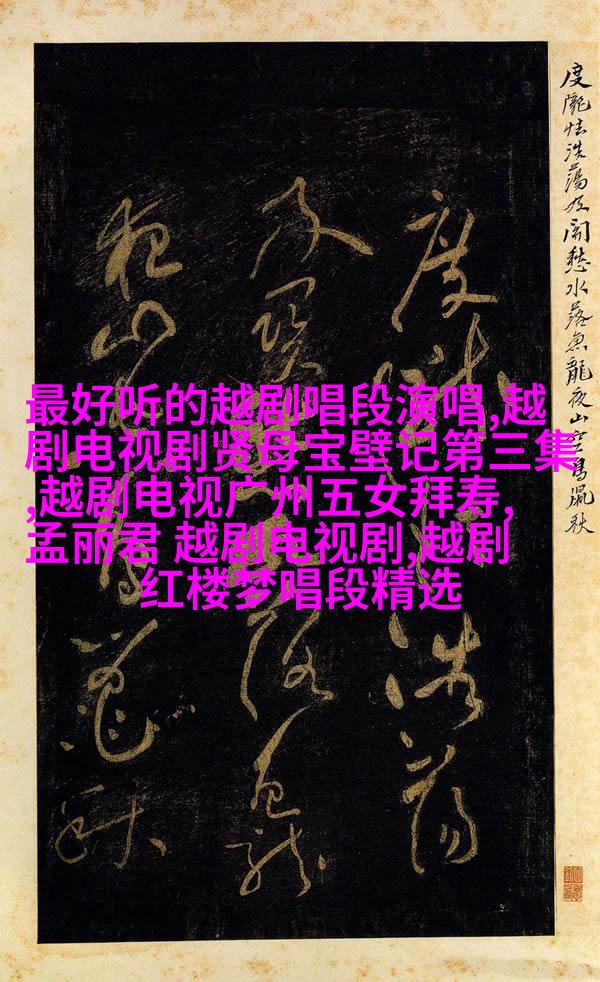 度隴怯浩蕩及関愁水落魚龍夜山空鳥鼠秋
度隴浩蕩
及関落魚龍
夜山秋
最好听的越剧唱段演唱,越
剧电视剧贤母宝壁记第三集
,越剧电视广州五女拜寿,
孟丽君 越剧电视剧,越剧
红楼梦唱段精选